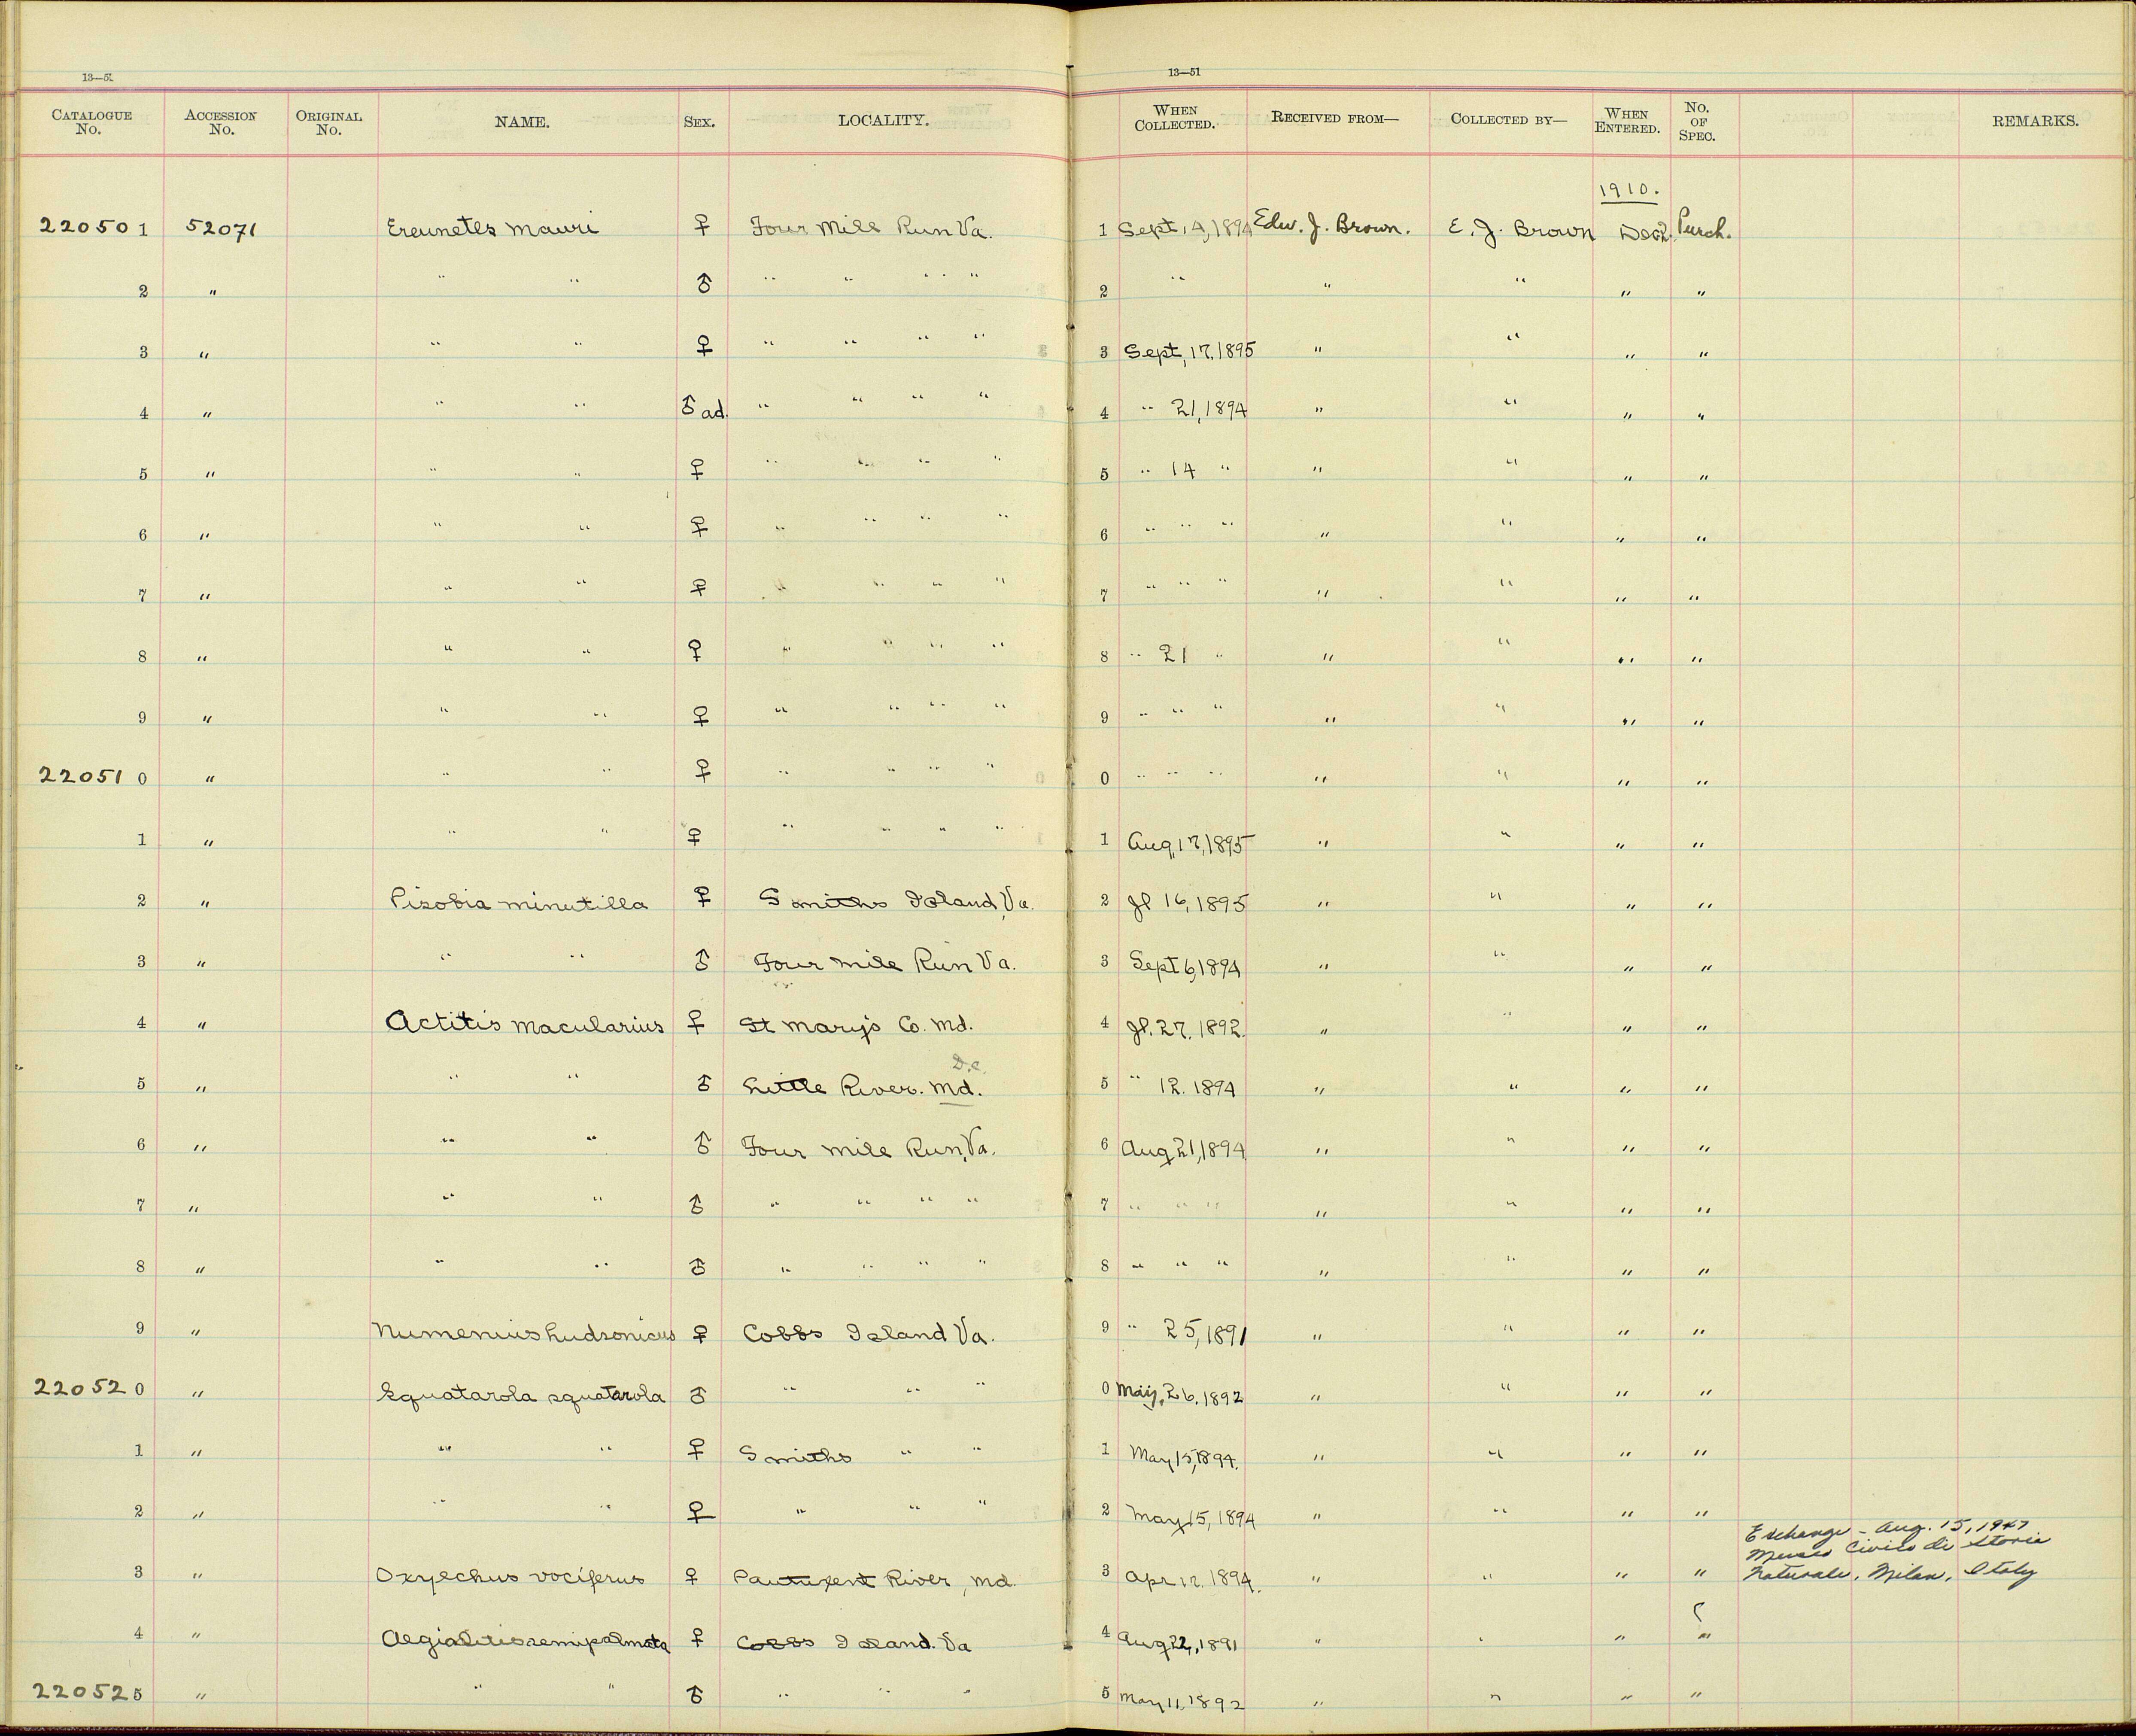 13—51 13—51
CATALOGUE No. ACCESSION No. ORIGINAL No. NAME. SEX. LOCALITY. WHEN COLLECTED. RECEIVED FROM— COLLECTED BY— WHEN ENTERED. No. OF SPEC. REMARKS.
1910.
220501 52071 Ereunetes mauri ♀ Four Mile Run Va. 1 Sept. 14, 1894 Edw. J. Brown. E. J. Brown Dec 2. Purch.
2 " " " ♂ " " " " 2 " " " " "
3 " " " ♀ " " " " 3 Sept, 17, 1895 " " " "
4 " " " ♂ ad. " " " " 4 " 21, 1894 " " " "
5 " " " ♀ " " " " 5 " 14 " " " " "
6 " " " ♀ " " " " 6 " " " " " " "
7 " " " ♀ " " " " 7 " " " " " " "
8 " " " ♀ " " " " 8 " 21 " " " " "
9 " " " ♀ " " " " 9 " " " " " " "
220510 " " " ♀ " " " " 0 " " " " " " "
1 " " " ♀ " " " " 1 Aug, 17, 1895 " " " "
2 " Pisobia minutilla ♀ Smiths Island, Va. 2 Jl 16, 1895 " " " "
3 " " " ♂ Four Mile Run Va. 3 Sept 6, 1894 " " " "
4 " Actitis macularius ♀ St Mary's Co. Md. 4 Jl. 27. 1892. " " " "
D.C.
5 " " " ♂ Little River. Md. 5 " 12. 1894 " " " "
6 " " " ♂ Four Mile Run, Va. 6 Aug 21, 1894 " " " "
7 " " " ♂ " " " " 7 " " " " " " "
8 " " " ♂ " " " " 8 " " " " " " "
9 " Numenius hudsonicus ♀ Cobbs Island Va. 9 " 25, 1891 " " " "
220520 " Squatarola squatarola ♂ " " " 0 May, 26. 1892 " " " "
1 " " " ♀ Smiths " " 1 May 15, 1894. " " " "
2 " " " ♀ " " " 2 May 15, 1894 " " " "
Exchange - Aug. 15, 1947
Museo Civico di Storia
3 " Oxyechus vociferus ♀ Patuxent River, Md. 3 Apr 12. 1894. " " " " Naturale, Milan, Italy
4 " Aegialitis semipalmata ♀ Cobbs Island. Va 4 Aug 22, 1891 " " " "
220525 " " " ♂ " " " 5 May 11, 1892 " " " "